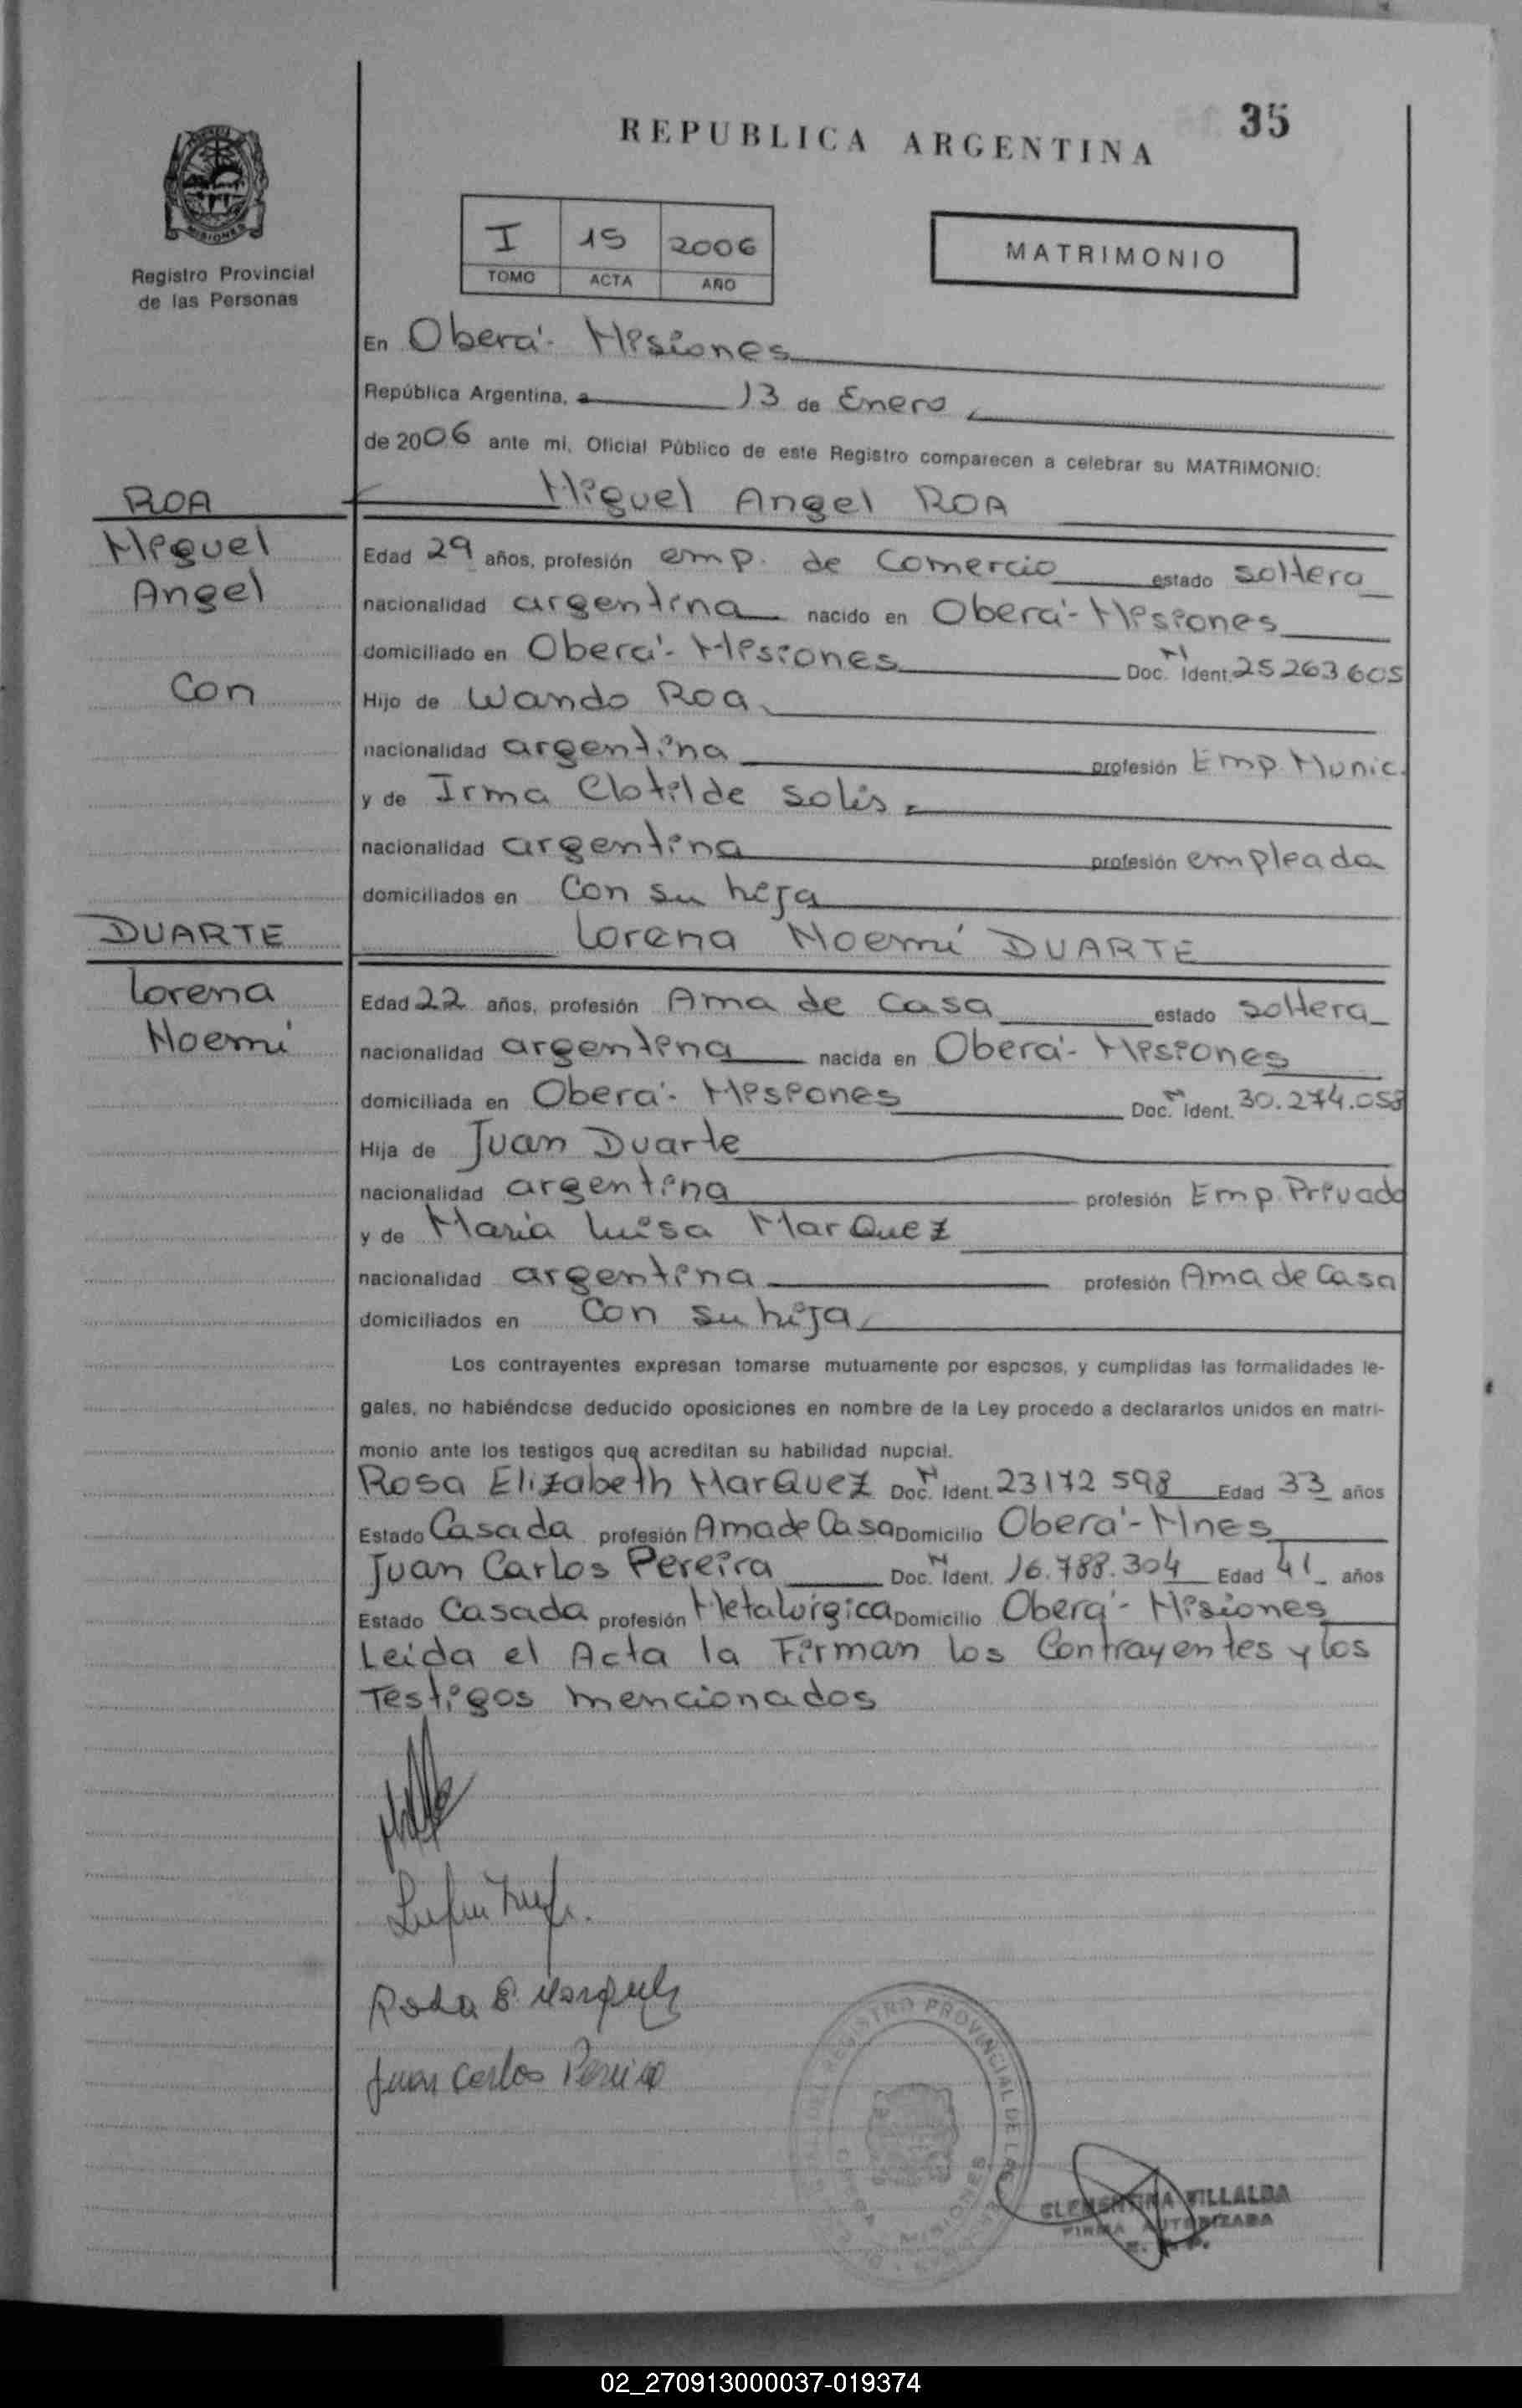 35
REPUBLICA ARGENTINA
MISIONES
Registro Provincial
de las Personas
I 15 2006
TOMO ACTA AÑO
MATRIMONIO
En Oberá - Misiones
República Argentina, a 13 de Enero
de 2006 ante mi, Oficial Público de este Registro comparecen a celebrar su MATRIMONIO:
ROA
Miguel
Angel
Con
DUARTE
Lorena
Noemí
Miguel Angel ROA
Edad 29 años, profesión emp. de Comercio estado soltero
nacionalidad argentina nacido en Oberá - Misiones
domiciliado en Oberá - Misiones Doc. N Ident. 25263605
Hijo de Wando Roa
nacionalidad argentina profesión Emp. Munic.
y de Irma Clotilde Solis
nacionalidad argentina profesión empleada
domiciliados en Con su hija
Lorena Noemí DUARTE
Edad 22 años, profesión Ama de Casa estado soltera
nacionalidad argentina nacida en Oberá - Misiones
domiciliada en Oberá - Misiones Doc. N Ident. 30.274.058
Hija de Juan Duarte
nacionalidad argentina profesión Emp. Privado
y de María Luisa MarQuez
nacionalidad argentina profesión Ama de Casa
domiciliados en Con su hija
Los contrayentes expresan tomarse mutuamente por esposos, y cumplidas las formalidades le-
gales, no habiéndose deducido oposiciones en nombre de la Ley procedo a declararlos unidos en matri-
monio ante los testigos que acreditan su habilidad nupcial.
Rosa Elizabeth MarQuez Doc. N Ident. 23172598 Edad 33 años
Estado Casada profesión Ama de Casa Domicilio Oberá - Mnes
Juan Carlos Pereira Doc. N Ident. 16.788.304 Edad 41 años
Estado Casada profesión Metalúrgica Domicilio Oberá - Misiones
Leída el Acta la Firman los Contrayentes y los
Testigos mencionados
Rosa E Marquez
Juan Carlos Pereira
REGISTRO PROVINCIAL DE LAS
MISIONES
CLEMENTINA VILLALBA
FIRMA AUTORIZADA
02_270913000037-019374